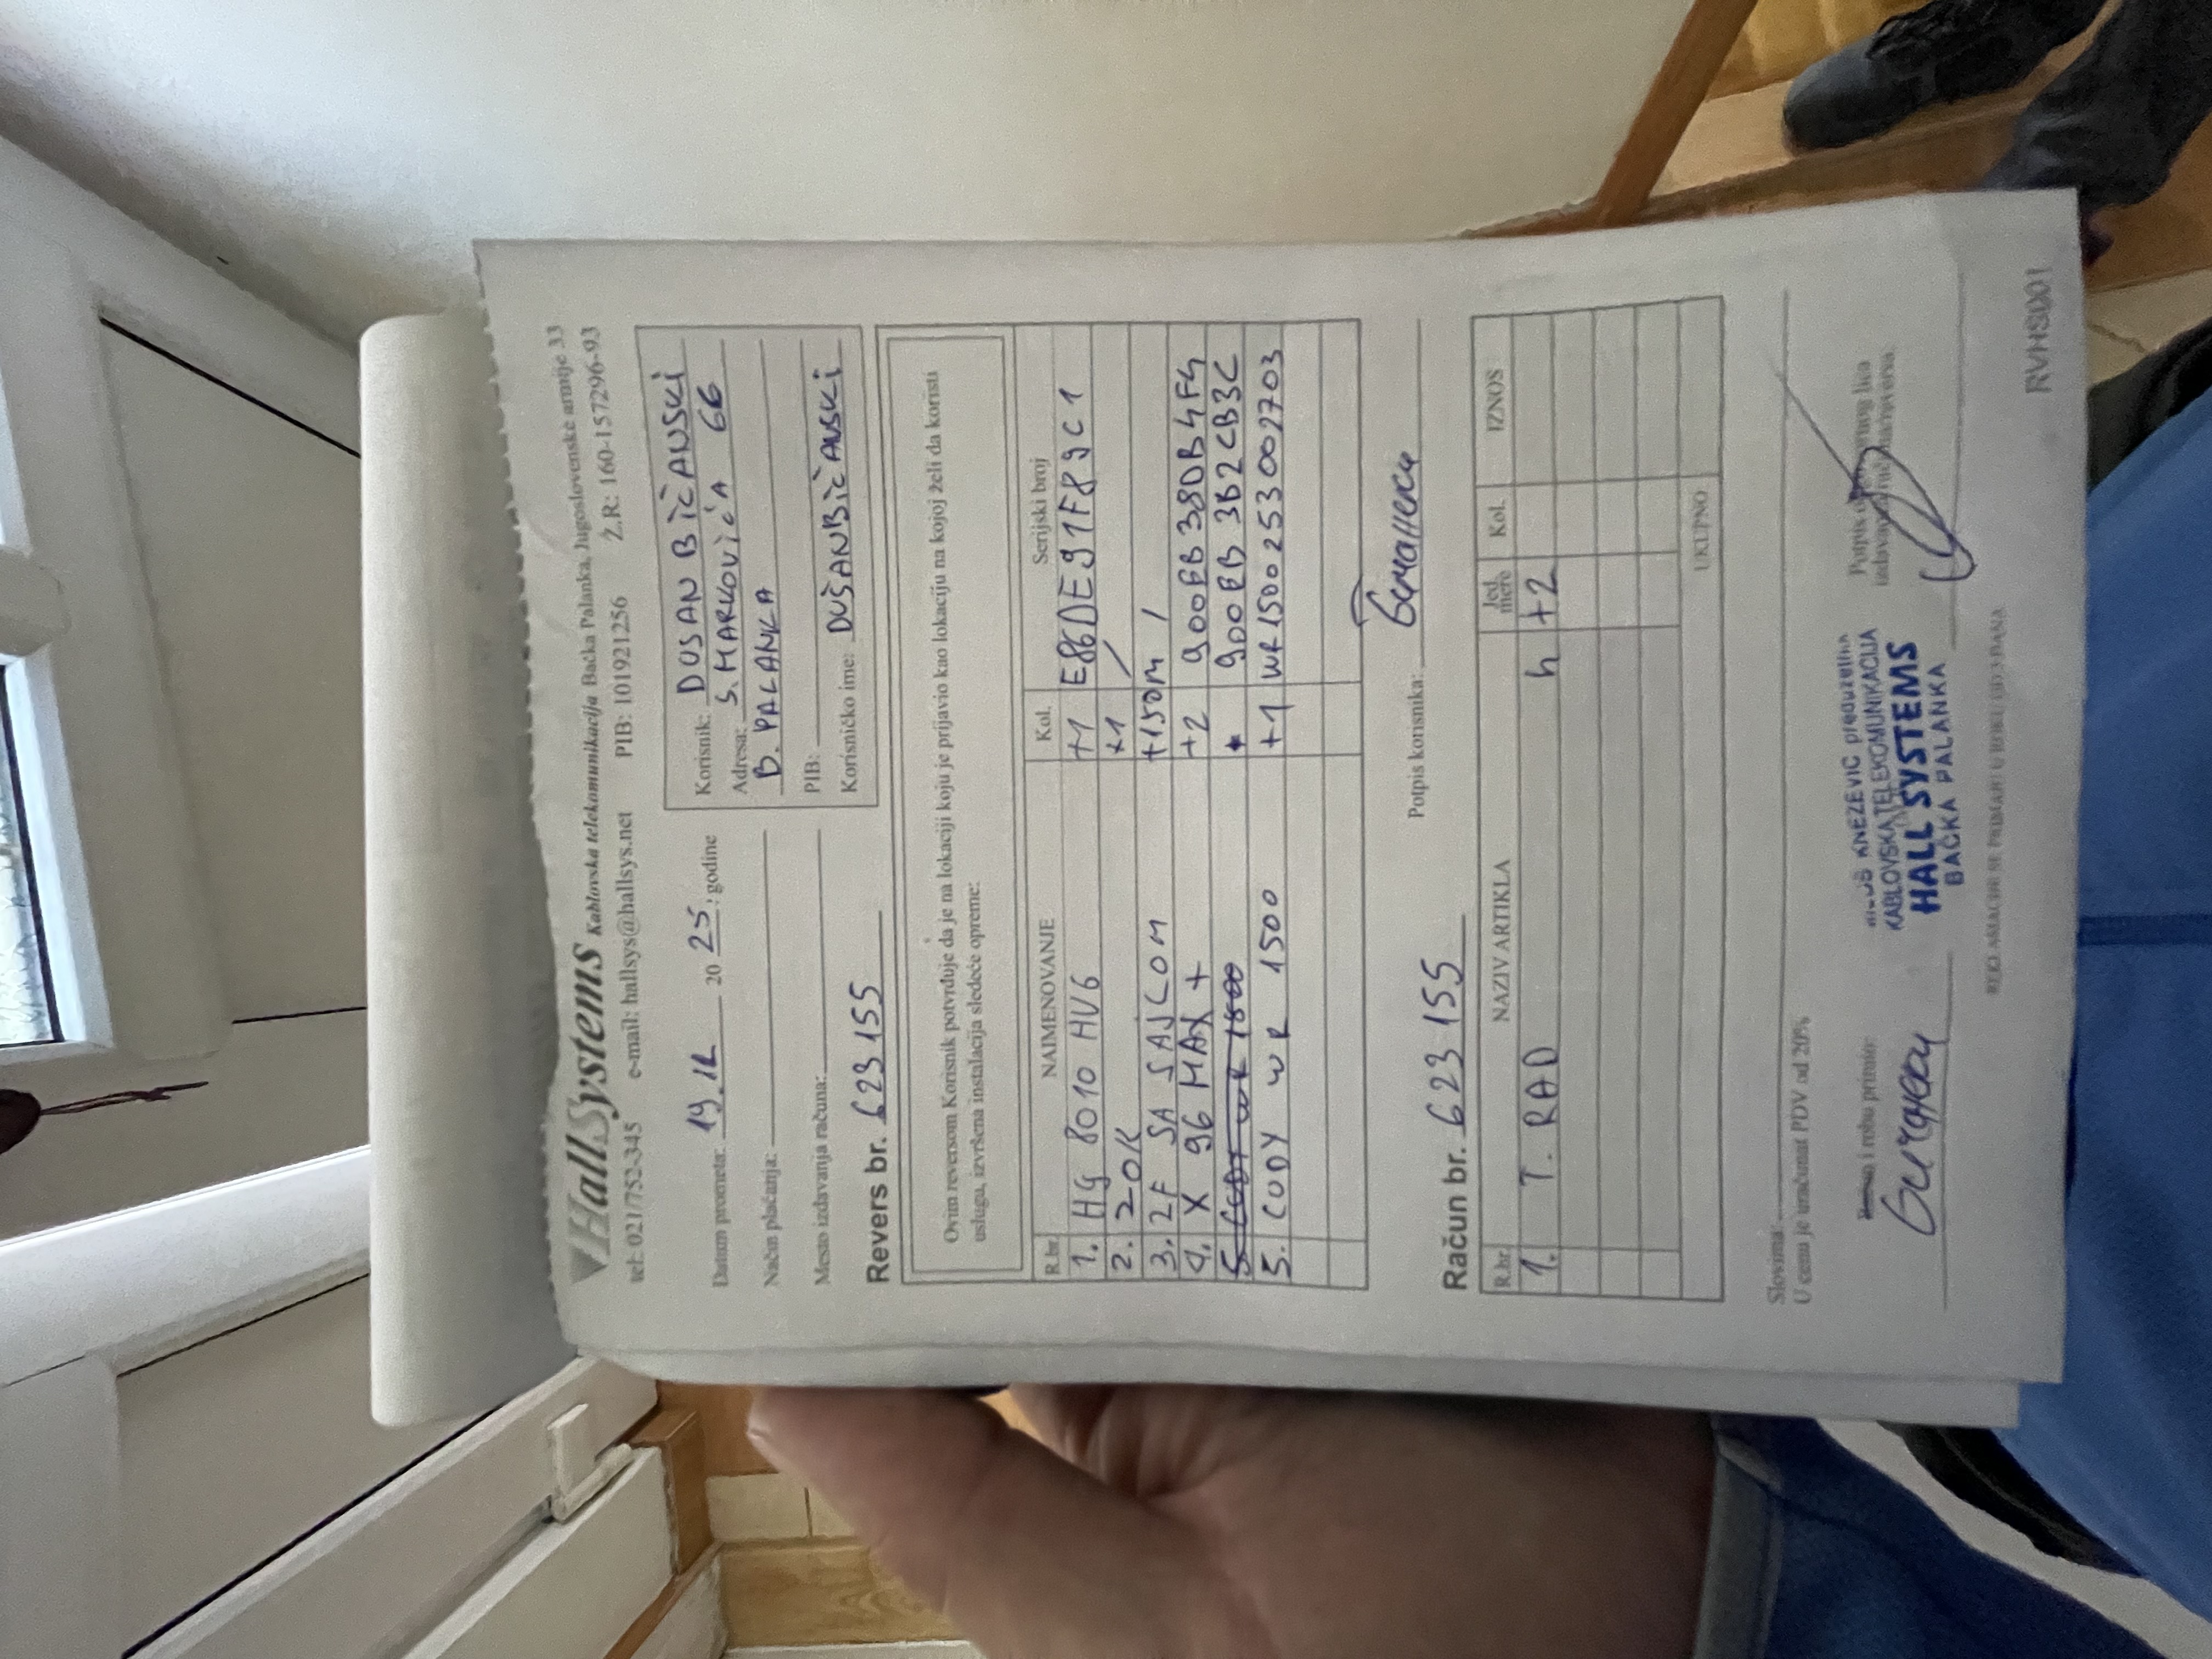 HallSystems Kablovska telekomunikacija Bačka Palanka, Jugoslovenske armije 33
tel: 021/752-345 e-mail: hallsys@hallsys.net PIB: 101921256 Ž.R: 160-1572296-93
Datum prometa: 19.12 20 25. godine
Način plaćanja:
Mesto izdavanja računa:
Korisnik: DUSAN BIČANSKI
Adresa: S. MARKOVIĆA 66
B. PALANKA
PIB:
Korisničko ime: DUŠANBIČANSKI
Revers br. 623155
Ovim reversom Korisnik potvrđuje da je na lokaciji koju je prijavio kao lokaciju na kojoj želi da koristi
uslugu, izvršena instalacija sledeće opreme:
R.br. NAIMENOVANJE Kol. Serijski broj
1. HG 8010 HV6 +1 E86DE91F89C1
2. ZOK +1 /
3. 2F SA SAJLOM +150m /
4. X 96 MAX + +2 900EB38DB4F4
900EB3B2CB3C
5. CUDY WR 1500 +1 WR1500253002703
Potpis korisnika:
Račun br. 623155
R.br. NAZIV ARTIKLA Jed. mere Kol. IZNOS
1. T. RAD h +2
UKUPNO:
Slovima:
U cenu je uračunat PDV od 20%
i robu primio:
Potpis lica
KNEŽEVIĆ preduzetnik
KABLOVSKA TELEKOMUNIKACIJA
HALL SYSTEMS
BAČKA PALANKA
REKLAMACIJE SE PRIMAJU U ROKU OD 3 DANA
RVHS001